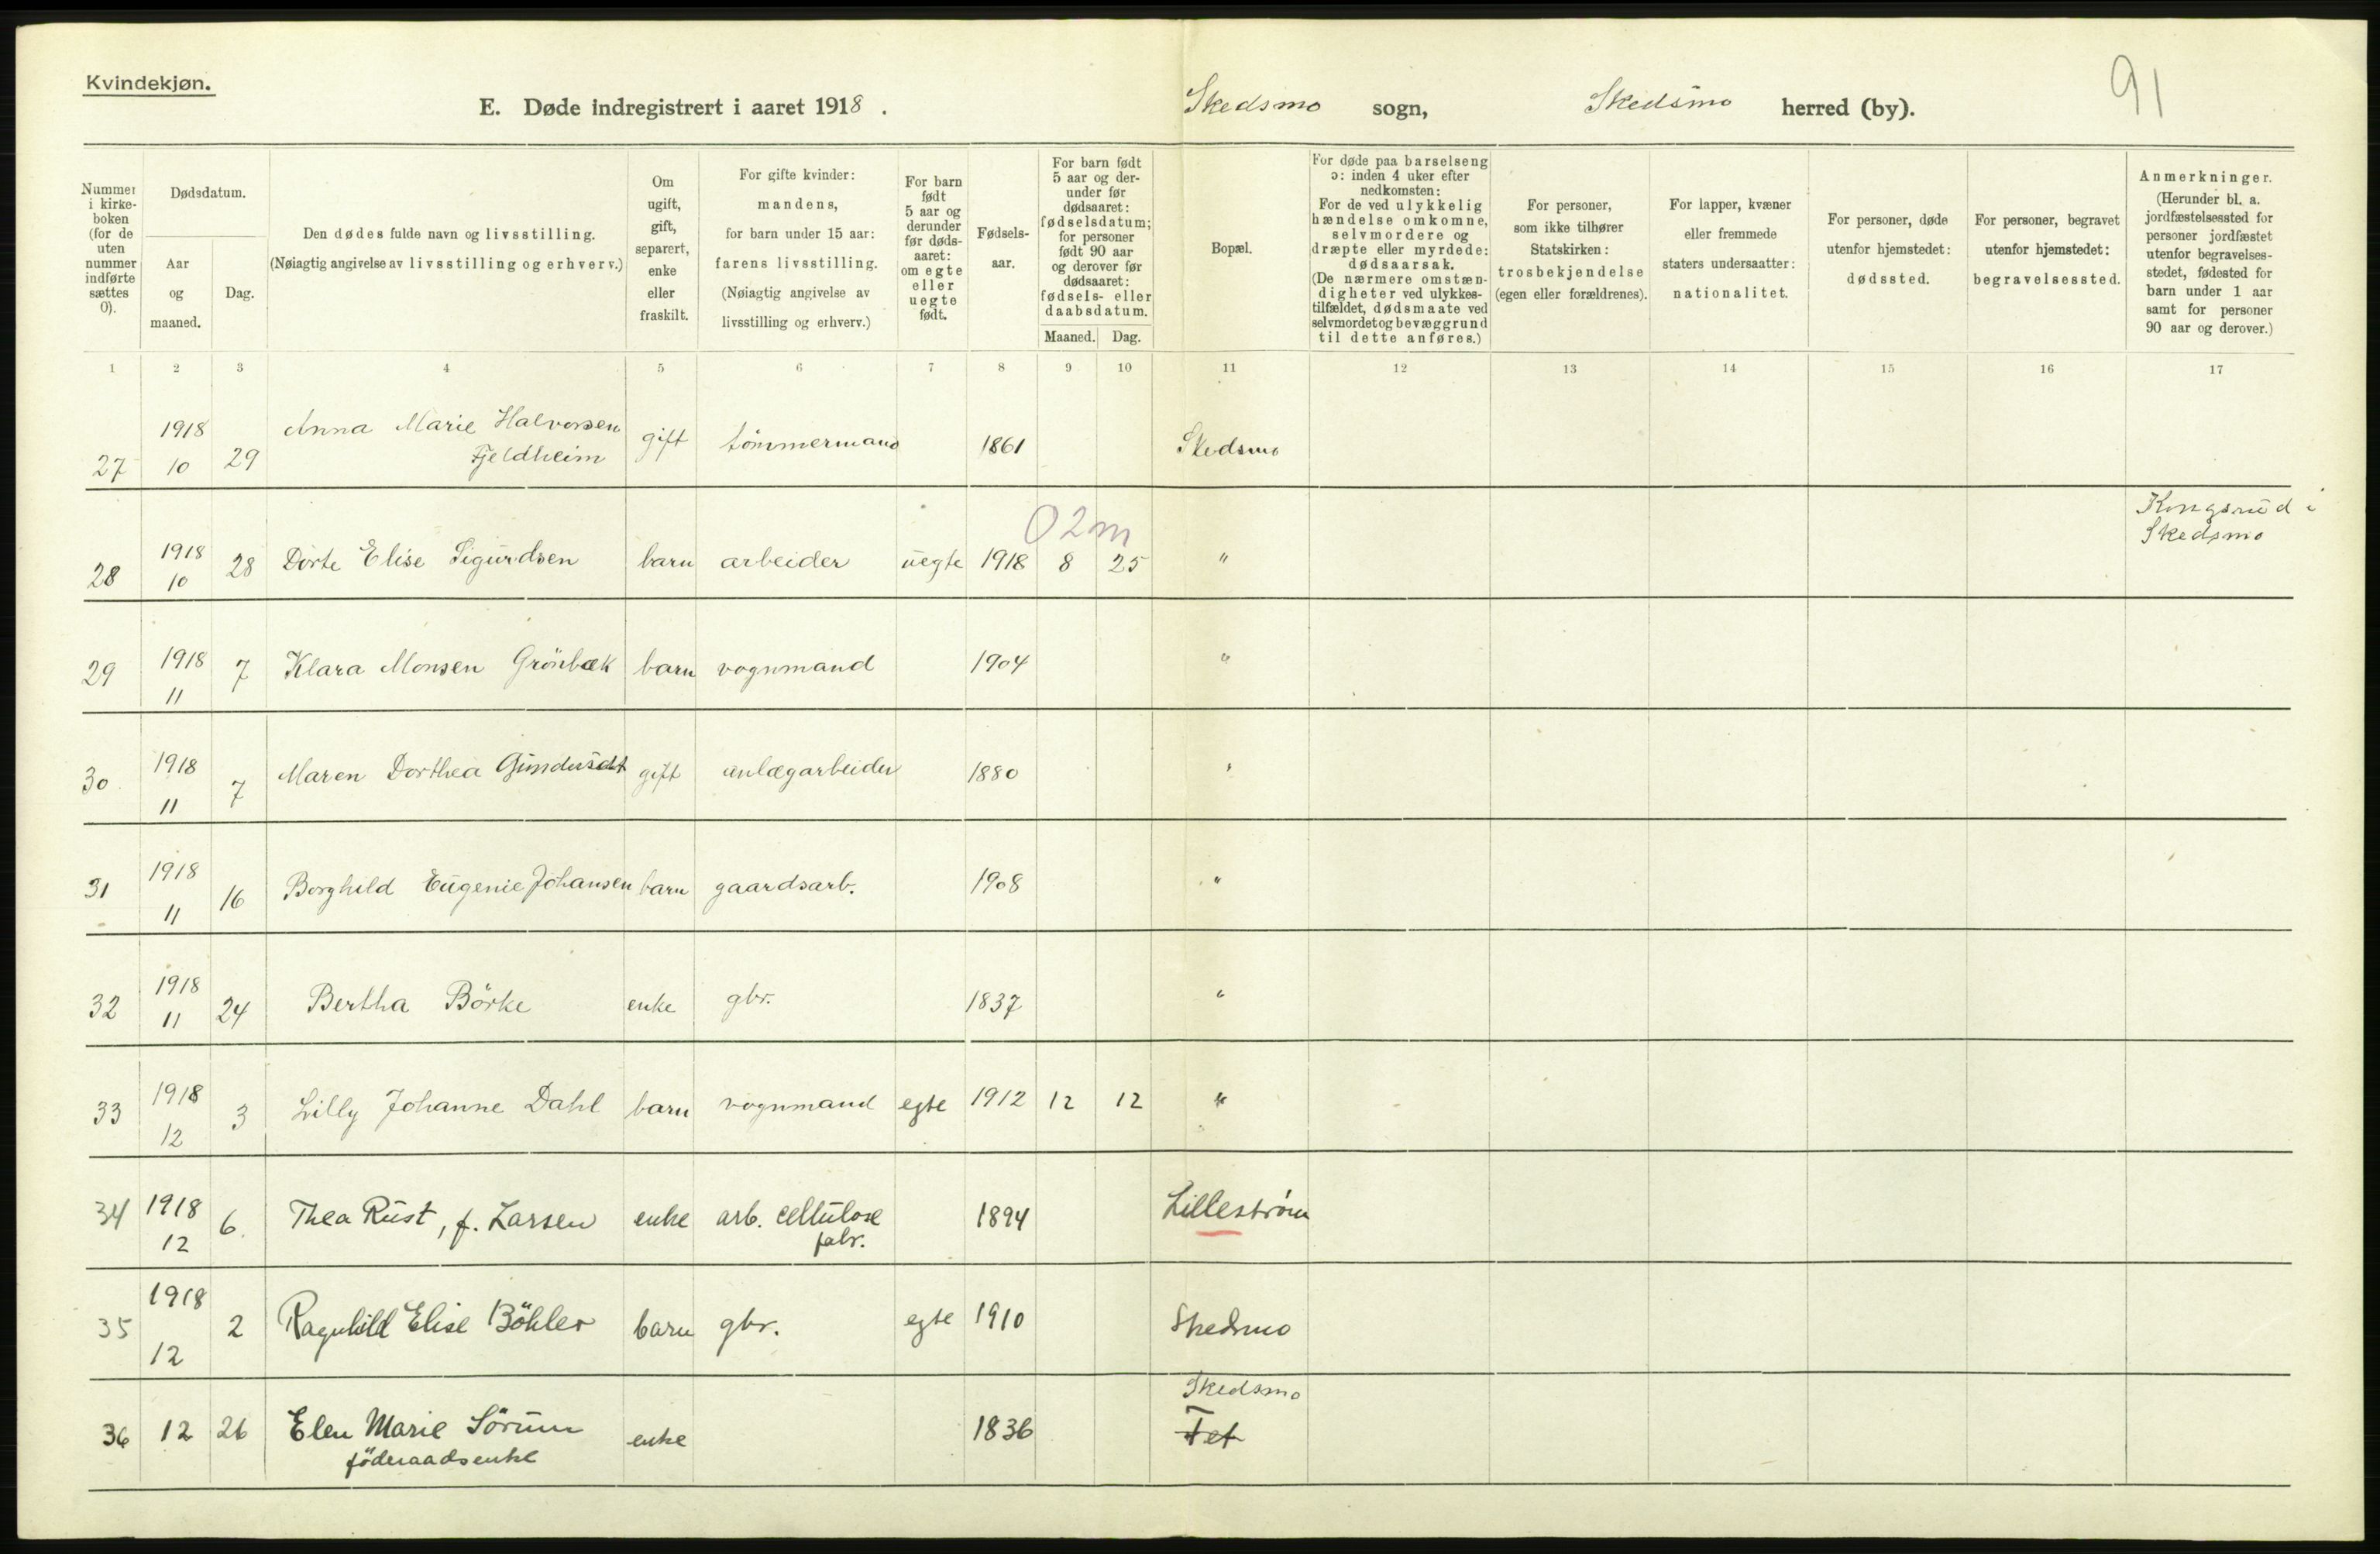 Kvindekjøn.
E. Døde indregistrert i aaret 1918. Skedsmo sogn, Skedsmo herred (by). 91
Nummer i kirkeboken (for de uten nummer indførte sættes 0).
Dødsdatum.
Aar og maaned.
Dag.
Den dødes fulde navn og livsstilling.
(Nøiagtig angivelse av livsstilling og erhverv.)
Om ugift, gift, separert, enke eller fraskilt.
For gifte kvinder: mandens, for barn under 15 aar: farens livsstilling. (Nøiagtig angivelse av livsstilling og erhverv.)
For barn født 5 aar og derunder før dødsaaret: om egte eller uegte født.
Fødselsaar.
For barn født 5 aar og derunder før dødsaaret: fødselsdatum; for personer født 90 aar og derover før dødsaaret: fødsels- eller daabsdatum.
Maaned. Dag.
Bopæl.
For døde paa barselseng ɔ: inden 4 uker efter nedkomsten: For de ved ulykkelig hændelse omkomne, selvmordere og dræpte eller myrdede: dødsaarsak. (De nærmere omstændigheter ved ulykkestilfældet, dødsmaate ved selvmordet og bevæggrund til dette anføres.)
For personer, som ikke tilhører Statskirken: trosbekjendelse (egen eller forældrenes).
For lapper, kvæner eller fremmede staters undersaatter: nationalitet.
For personer, døde utenfor hjemstedet: dødssted.
For personer, begravet utenfor hjemstedet: begravelsessted.
Anmerkninger. (Herunder bl. a. jordfæstelsessted for personer jordfæstet utenfor begravelsesstedet, fødested for barn under 1 aar samt for personer 90 aar og derover.)
1 2 3 4 5 6 7 8 9 10 11 12 13 14 15 16 17
27 1918 10 29 Anna Marie Halvorsen Fjeldheim gift tömmermand 1861 Skedsmo
28 1918 10 28 Dorte Elise Sigurdsen barn arbeider uegte 1918 8 25 02m " Kongsrud i Skedsmo
29 1918 11 7 Klara Monsen Grönbæk barn vognmand 1904 "
30 1918 11 7 Maren Dorthea gift anlægarbeider 1880 "
31 1918 11 16 Borghild Eugenie Johansen barn gaardsarb. 1908 "
32 1918 11 24 Bertha Börke enke gbr. 1837 "
33 1918 12 3 Lilly Johanne Dahl barn vognmand egte 1912 12 12 "
34 1918 12 6. Thea Rust, f. Larsen enke arb. cellulose fabr. 1894 Lilleström
35 1918 12 2 Ragnhild Elise Böhler barn gbr. egte 1910 Skedsmo
36 12 26 Elen Marie Sörum föderaadsenke enke 1836 Skedsmo Fet